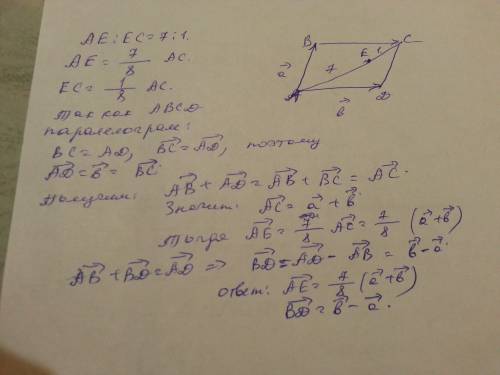 AE : EC = 7 : 1.
AE = 7/8 AC.
EC = 1/8 AC.
Так как ABCD
паралелограм:
BC = AD, \vec{BC} = \vec{AD}, поэтому
\vec{AD} = \vec{b} = \vec{BC}
Получим: \vec{AB} + \vec{AD} = \vec{AB} + \vec{BC} = \vec{AC}.
Значит: \vec{AC} = \vec{a} + \vec{b}
Тогда \vec{AE} = 7/8 \vec{AC} = 7/8 (\vec{a} + \vec{b})
\vec{AB} + \vec{BD} = \vec{AD} => \vec{BD} = \vec{AD} - \vec{AB} = \vec{b} - \vec{a}.
ответ: \vec{AE} = 7/8 (\vec{a} + \vec{b})
\vec{BD} = \vec{b} - \vec{a}.
B C
E 1
\vec{a} 7
A D
\vec{b}